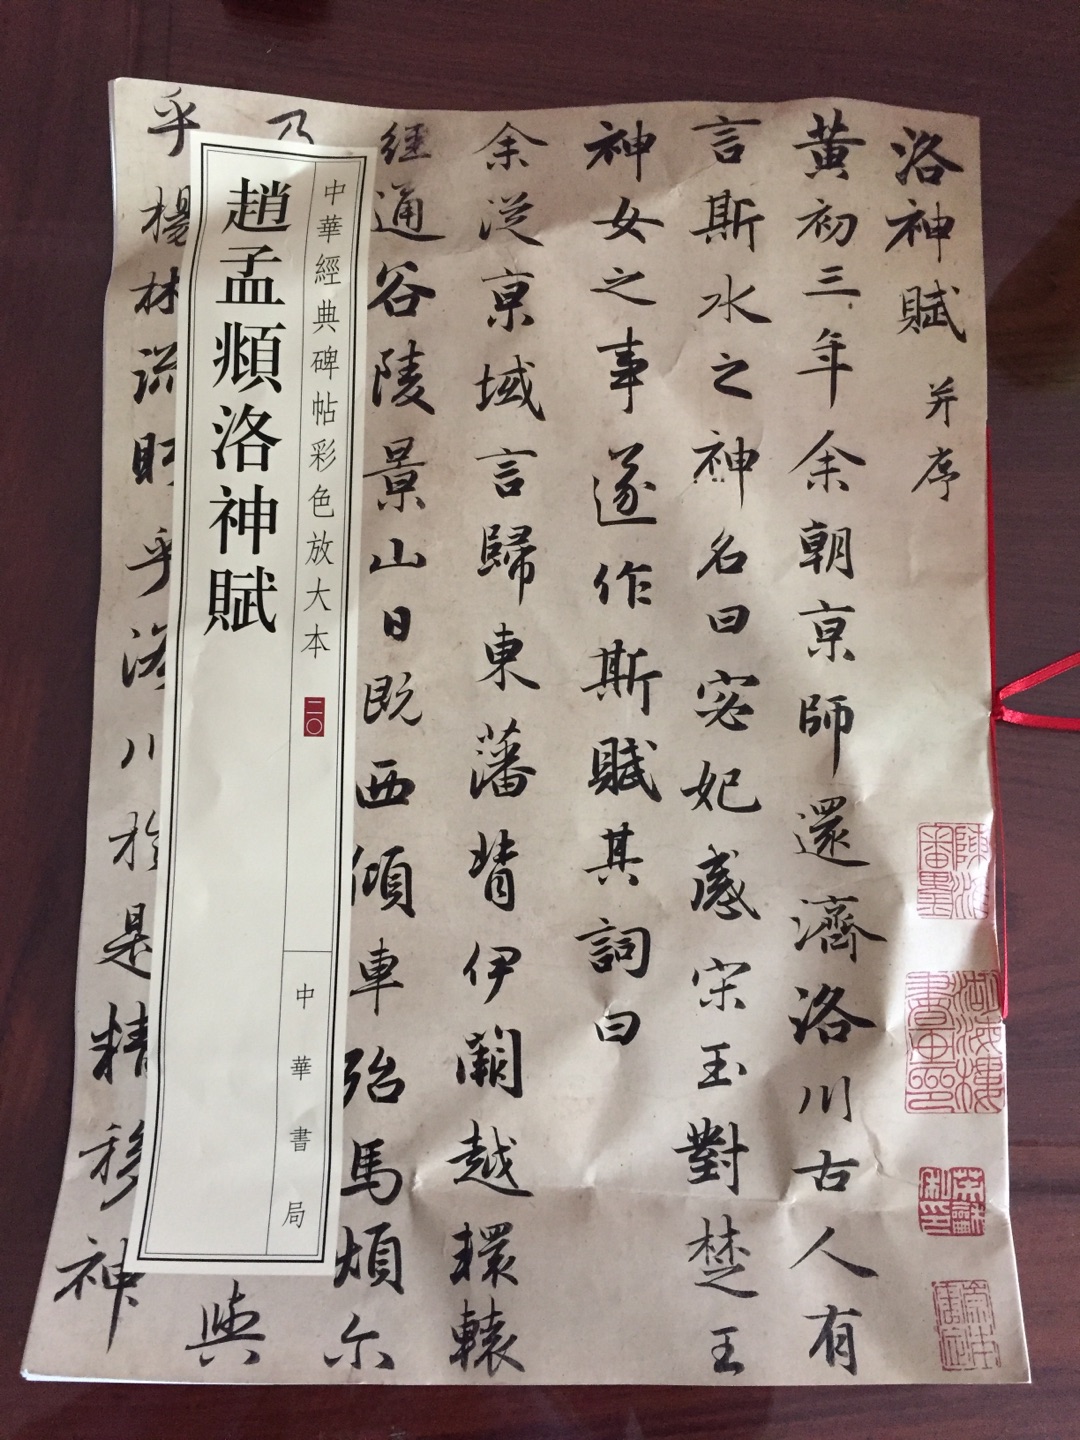 洛神賦 并序
黃初三年余朝京師還濟洛川古人有
言斯水之神名曰宓妃感宋玉對楚王
神女之事遂作斯賦其詞曰
余從京域言歸東藩背伊闕越轘轅
經通谷陵景山日既西傾車殆馬煩尒
乃
與
乎楊林流眄乎洛川於是精移神
中華經典碑帖彩色放大本 二〇
趙孟頫洛神賦
中華書局